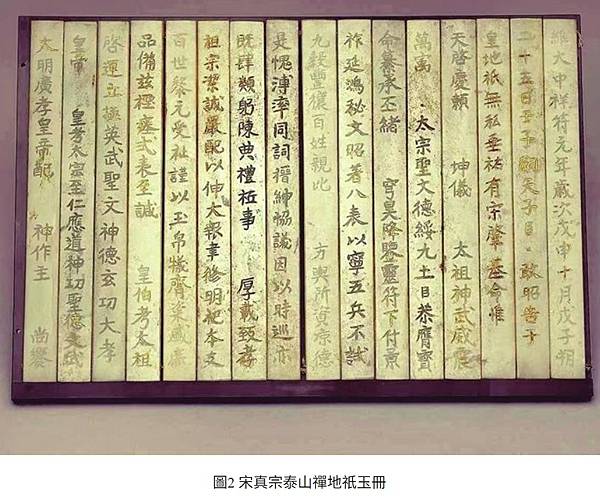 維大中祥符元年歲次戊申十月戊子朔
二十五日壬子嗣天子臣 敢昭告于
皇地祇無私垂祐有宋肇基命惟
天啓慶賴 坤儀 太祖神武威震
萬寓 太宗聖文德綏九土臣恭膺寶
命纂承丕緒 穹昊降鑒靈符下付景
祚延鴻秘文昭著八表以寧五兵不試
九穀豐穰百姓親比 方輿所資涼德
是愧溥率同詞搢紳協議因以時巡亦
既肆類躬陳典禮祗事 厚載致孝
祖宗潔誠嚴配以伸大報聿修明祀本支
百世黎元受祉謹以玉帛犧齊粢盛庶
品備茲禋瘞式表至誠 皇伯考太祖
啓運立極英武聖文神德玄功大孝
皇帝 皇考太宗至仁應道神功聖德文武
大明廣孝皇帝配 神作主 尚饗
圖2 宋真宗泰山禪地祇玉冊